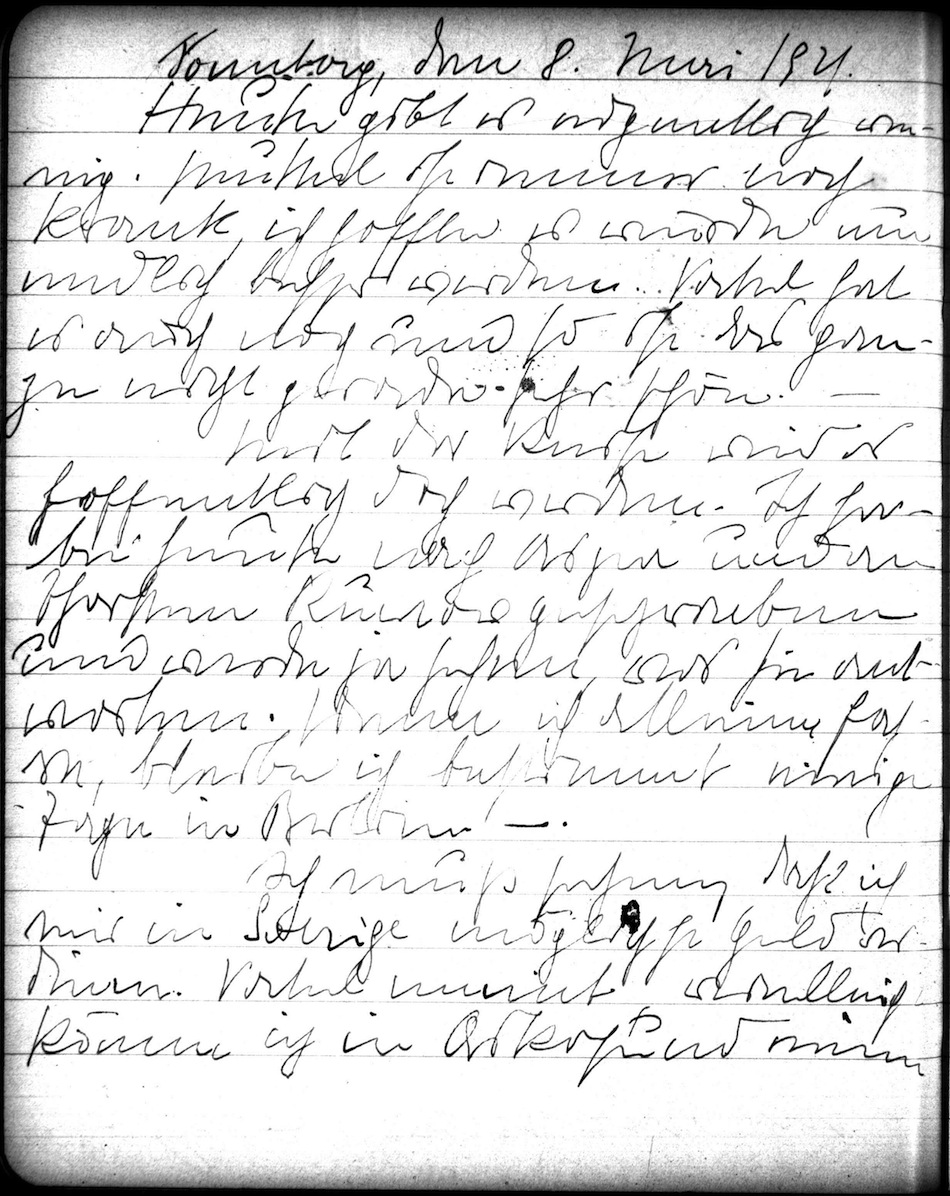 Sonntag, den 8. Mai 1921.
Heute gibt es eigentlich we-
nig. Muttel ist immer noch
krank, ich hoffe es würde nun
endlich besser werden. Vatel hat
es auch noch und so ist das gan-
ze nicht gerade sehr schön. —
Mit der Reise wird es
hoffentlich doch werden. Ich ha-
be heute nach und an
geschrieben
und werde ja sehen, was sie ant-
worten. Könnte ich alleine fah-
ren, bleibe ich bestimmt einige
Tage in Berlin —.
Ich muß sehen, daß ich
mir in Sverige möglichst Geld ver-
diene. Vatel meint vielleicht
könne ich in einen